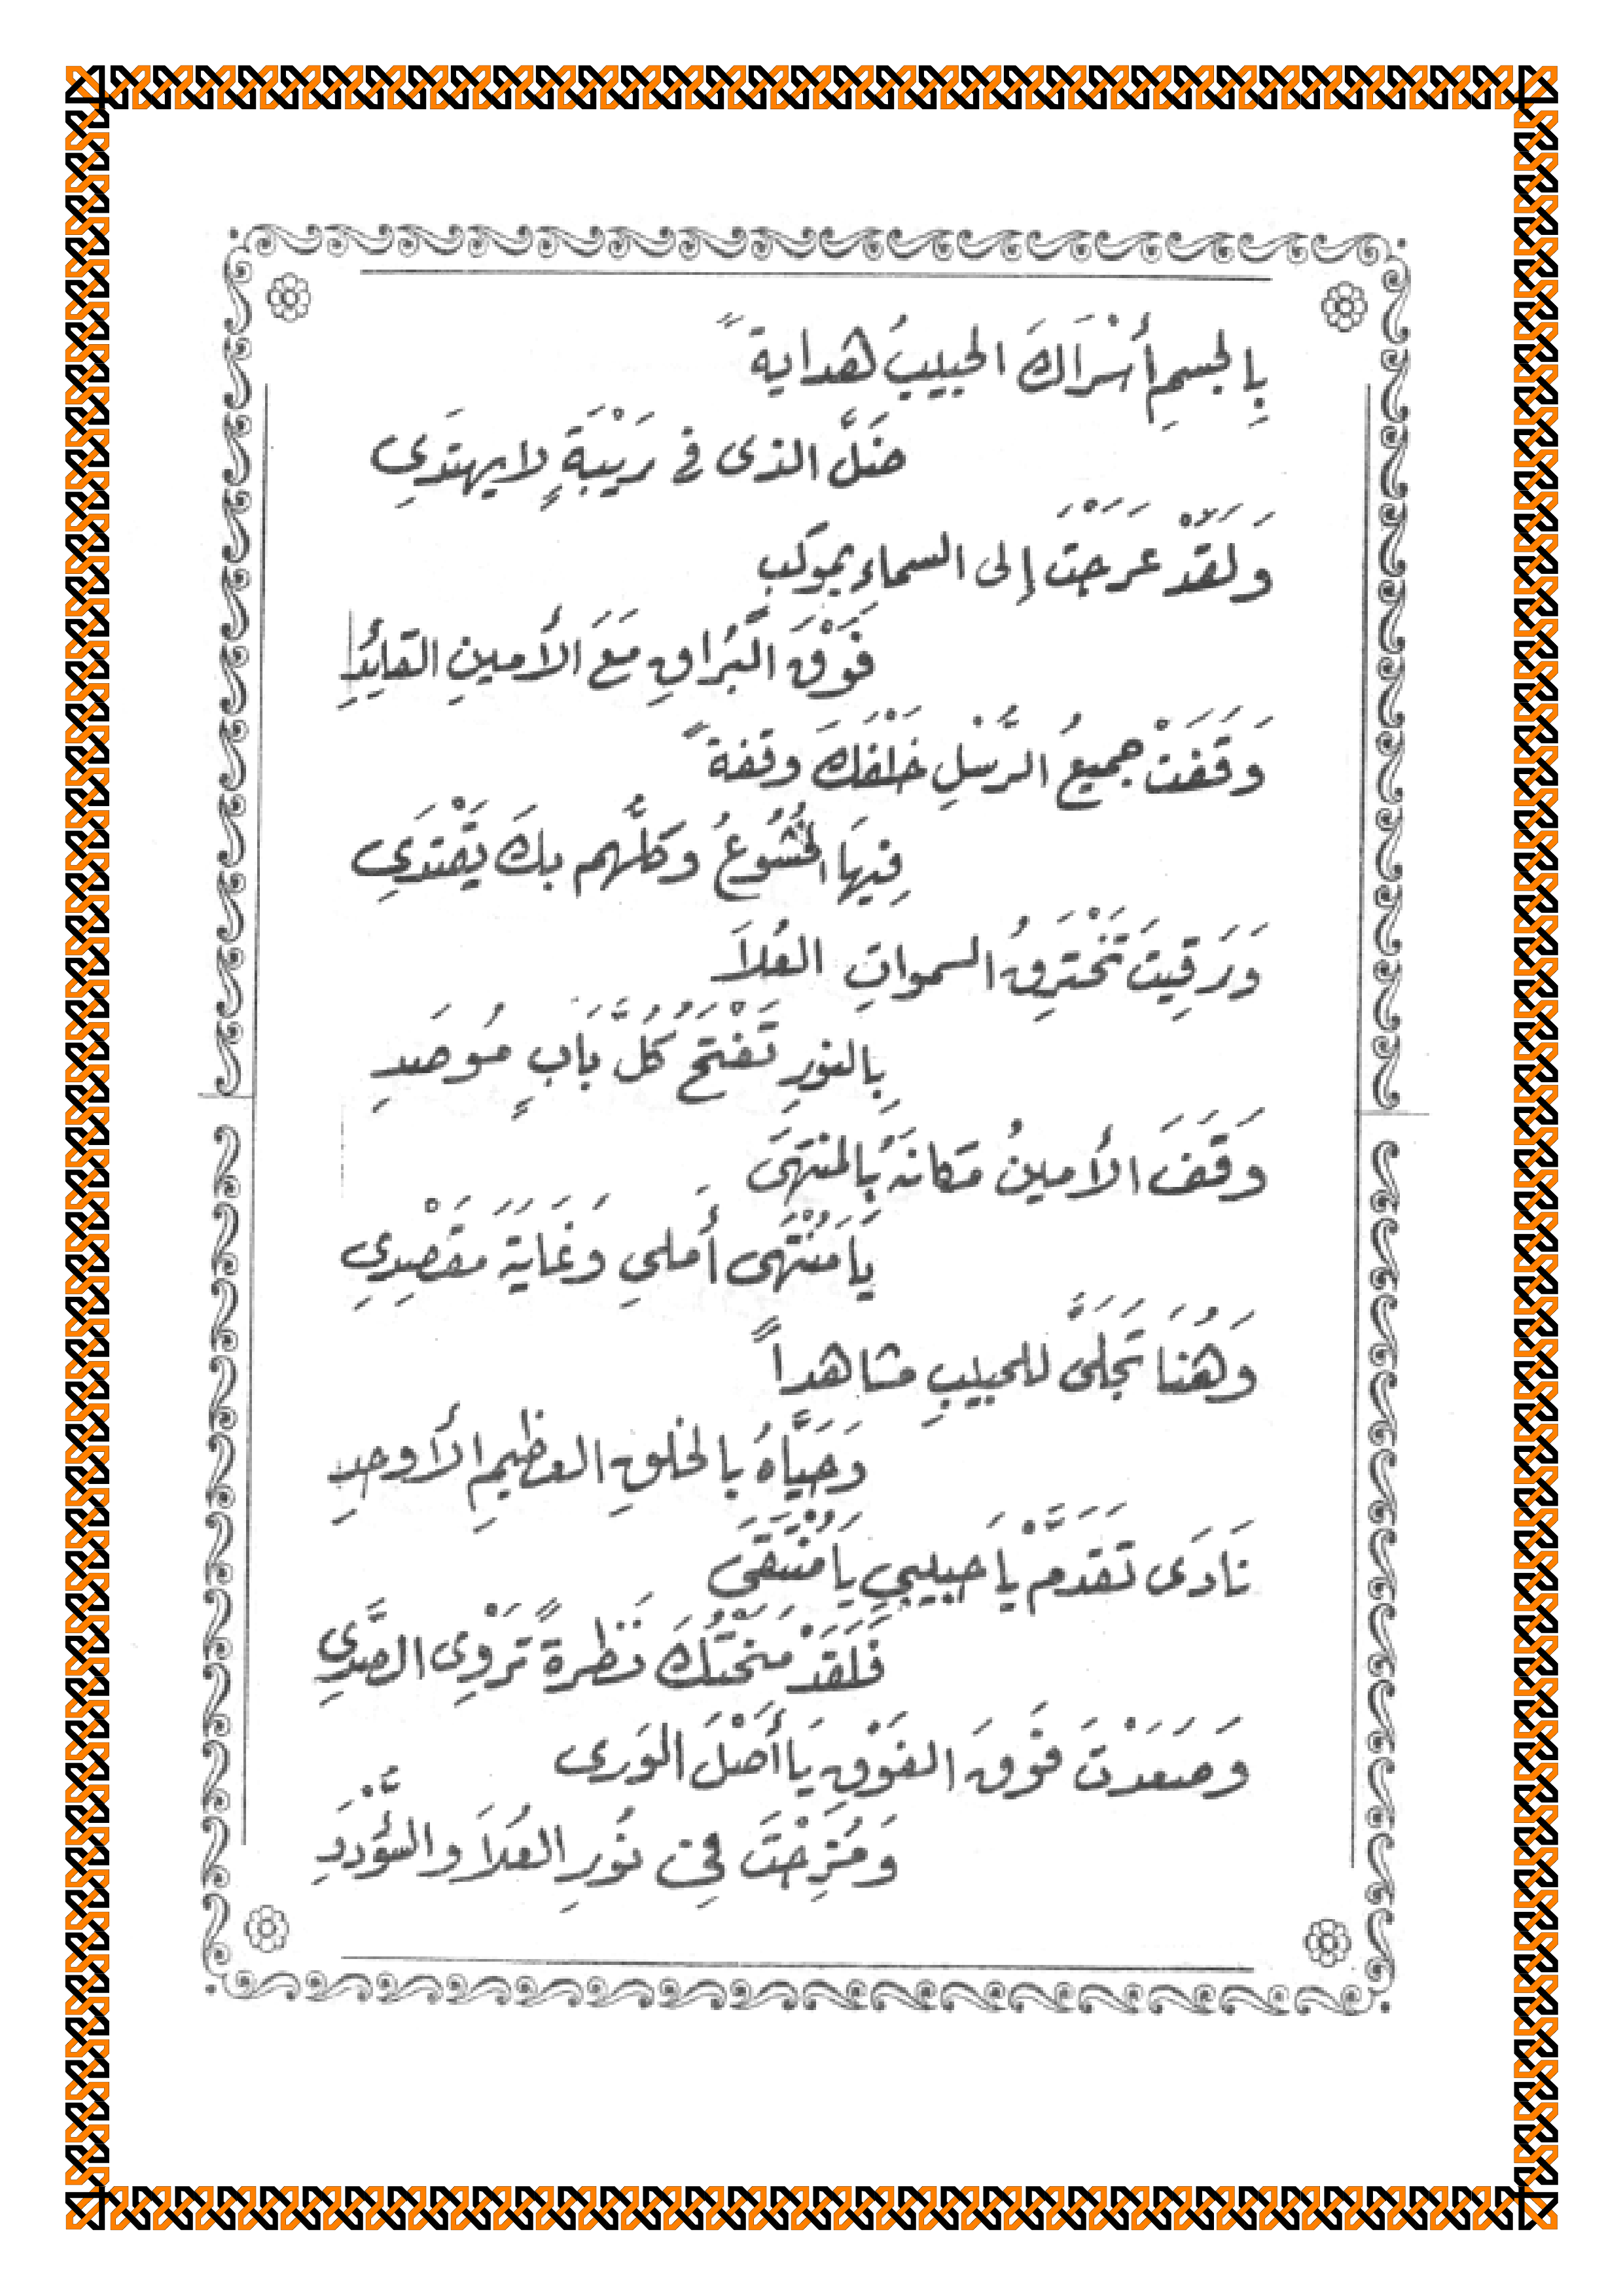 بِالجسمِ أسْرَاكَ الحبيبُ هدايةً
ضَلَّ الذى فى رَيْبَةٍ لا يهتَدِي
وَلَقَدْ عَرَجْتَ إلى السماءِ بموكبٍ
فَوْقَ البُراقِ مَعَ الأمينِ القائِدِ
وَقَفَتْ جميعُ الرُّسْلِ خَلْفَكَ وقفةً
فِيهَا الخُشُوعُ وكلُّهم بكَ يَقْتَدِي
وَرَقِيتَ تَخْتَرِقُ السمواتِ العُلاَ
بِالنورِ تَفْتَحُ كُلَّ بَابٍ مُوصَدِ
وَقَفَ الأمينُ مَكانَهُ بالمنتهَى
يَا مُنْتَهَى أَملي وَغَايَةَ مَقْصِدِي
وَهُنَا تَجَلَّى للحبيبِ مشاهداً
وَحَيَّاهُ بالخلقِ العظيمِ الأوحدِ
نَادَى تَقَدَّمْ يَا حَبيبِي يَا مُنْتَقَى
فَلَقَدْ مَنَحْتُكَ نَظرةً تَرْوِى الصَّدِي
وَصَعَدْتَ فَوقَ الفَوْقِ يَا أَصْلَ الوَرى
وَمُزِجْتَ فِى نُورِ العُلاَ والسُّؤْدَدِ